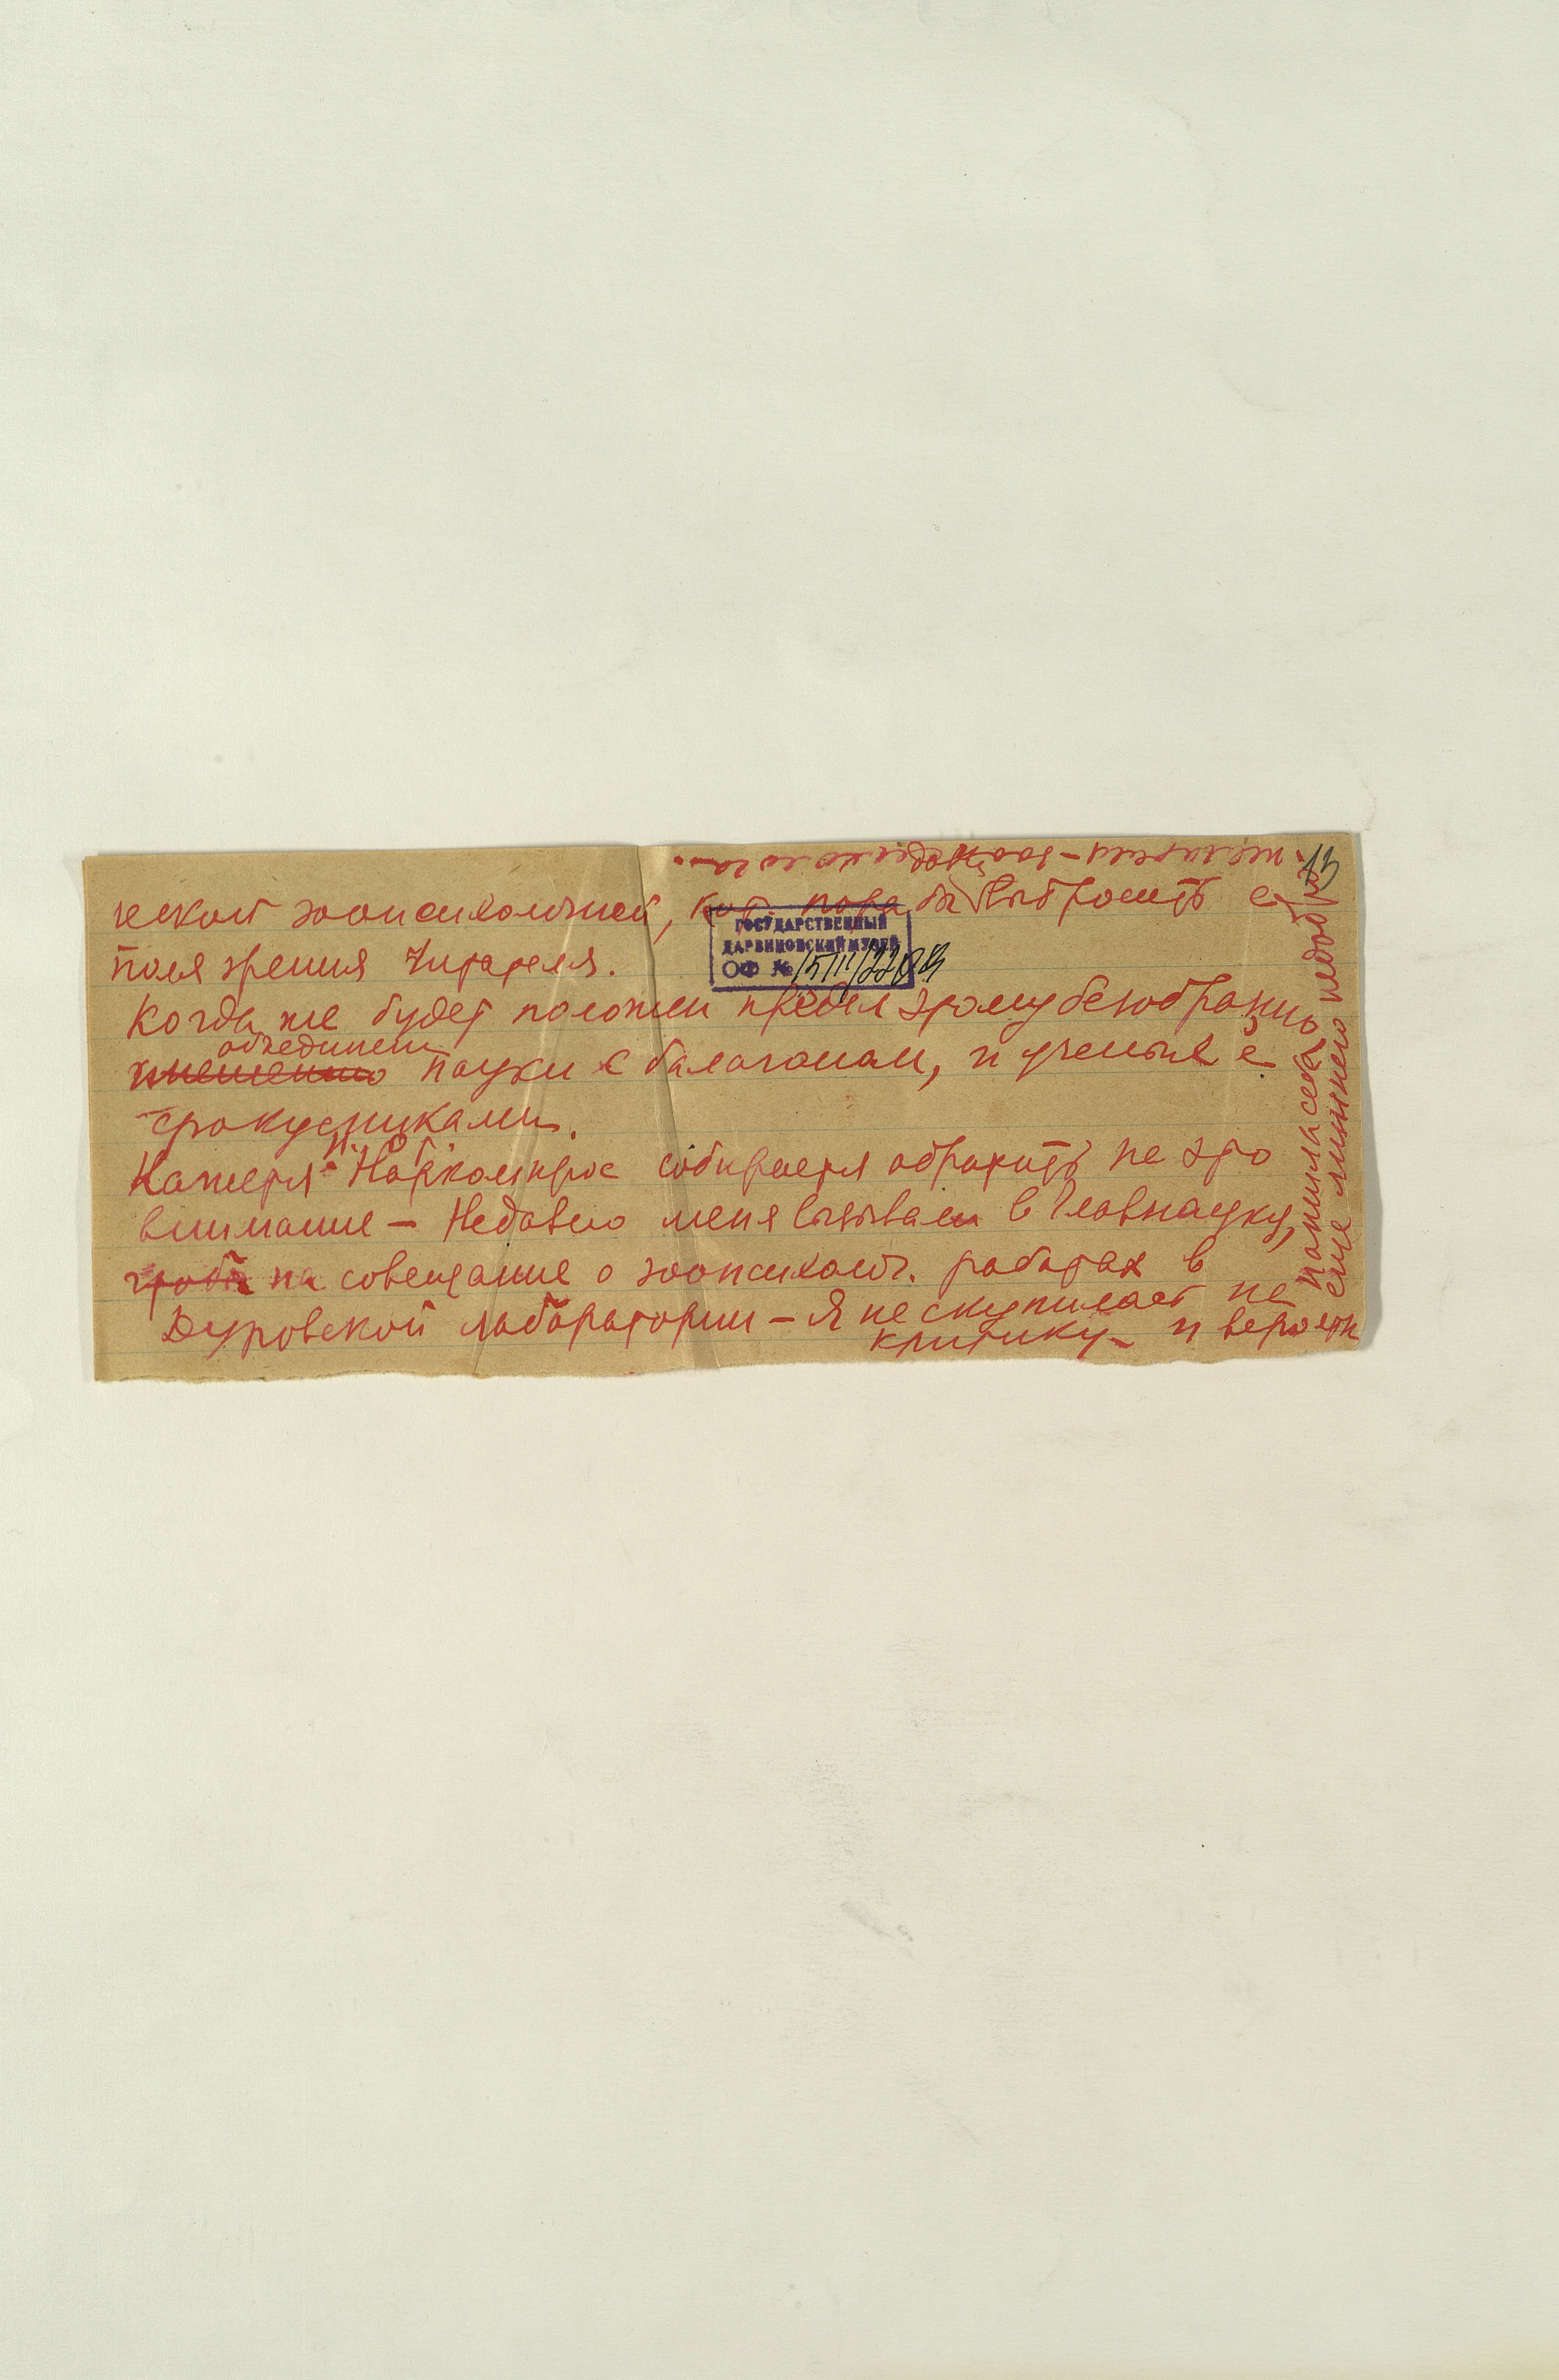 ческой зоопсихологией, кот. пора бы выбросить с
поля зрения читателя.
Когда же будет положен предел этому безобразию
объединен
науки с балаганом, и ученые с
фокусниками.
Кажется Н. О. Т. Наркомпрос собирается обратить на это
внимание – Недавно меня вызывали в Главнауку,
чтобы на совещание о зоопсихолог. работах в
Дуровской лаборатории – Я не скупилась на
критику – и вероятн
нажила себе
еще лишнего недобро
желателя – зоопсихолога...
13
ГОСУДАРСТВЕННЫЙ
ДАРВИНОВСКИЙ МУЗЕЙ
ОФ №